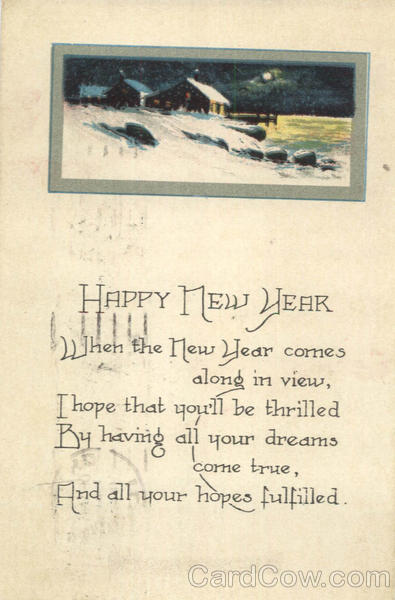 HAPPY NEW YEAR
When the New Year comes
along in view,
I hope that you'll be thrilled
By having all your dreams
come true,
And all your hopes fulfilled.
CardCow.com